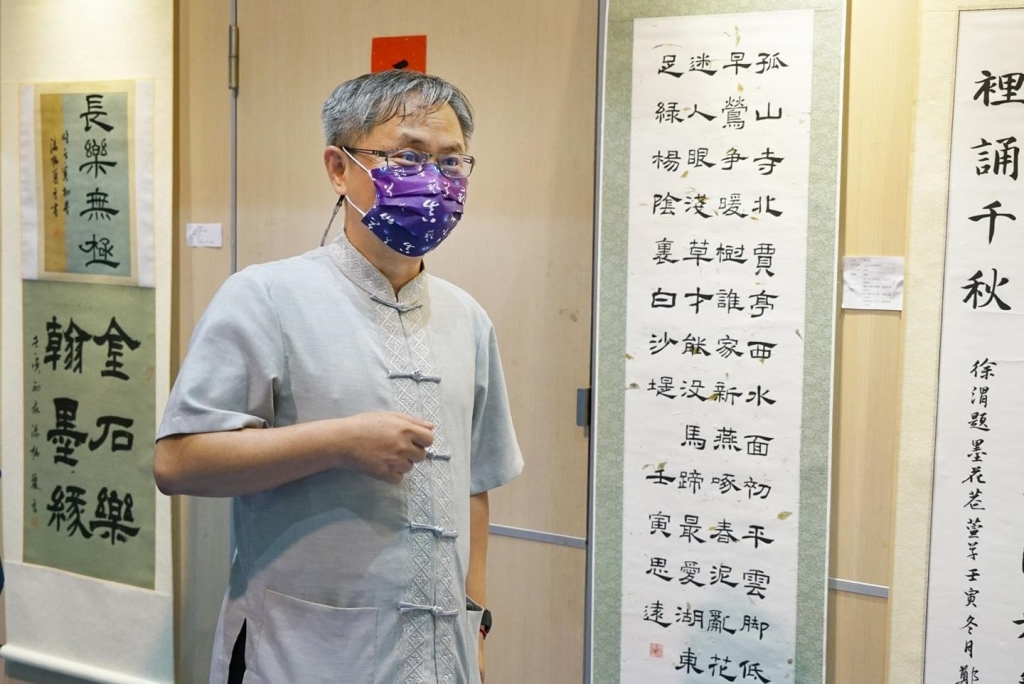 裡誦千秋
徐渭題墨花萱草壬寅冬月鄭
孤山寺北賈亭西水面初平雲脚低
早鶯争暖樹誰家新燕啄春泥亂花
迷人眼淺草才能没馬蹄最愛湖東
足綠楊陰裏白沙堤
壬寅思遠
長樂無極
金石樂
翰墨緣